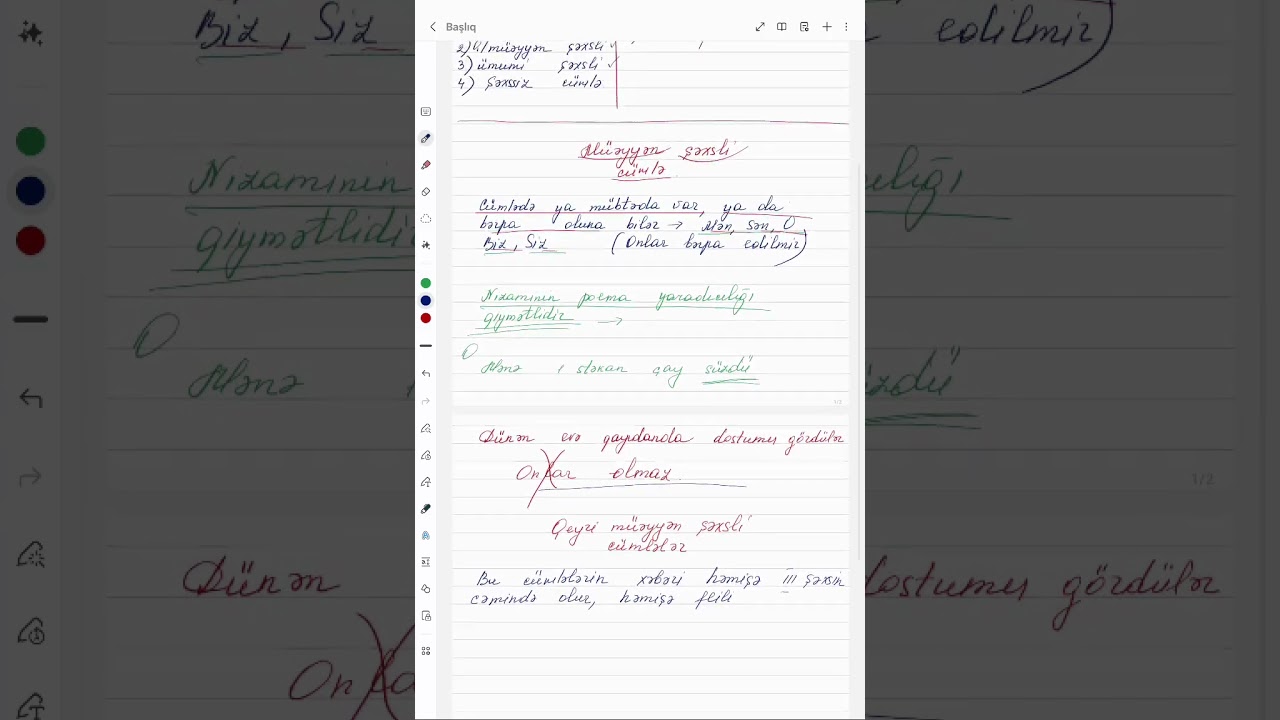 Başlıq
2) q/müəyyən şəxsli
3) ümumi şəxsli ✓
4) şəxssiz cümlə
Müəyyən şəxsli
cümlə
Cümlədə ya mübtəda var, ya da
bərpa oluna bilər → Mən, sən, O
Biz, Siz (Onlar bərpa edilmir)
Nizaminin poema yaradıcılığı
qiymətlidir →
O
Mənə 1 stəkan çay süzdü
1/2
Dünən evə qayıdanda dostumu gördülər
Onlar olmaz
Qeyri müəyyən şəxsli
cümlələr
Bu cümlələrin xəbəri həmişə III şəxsin
cəmində olur, həmişə feili